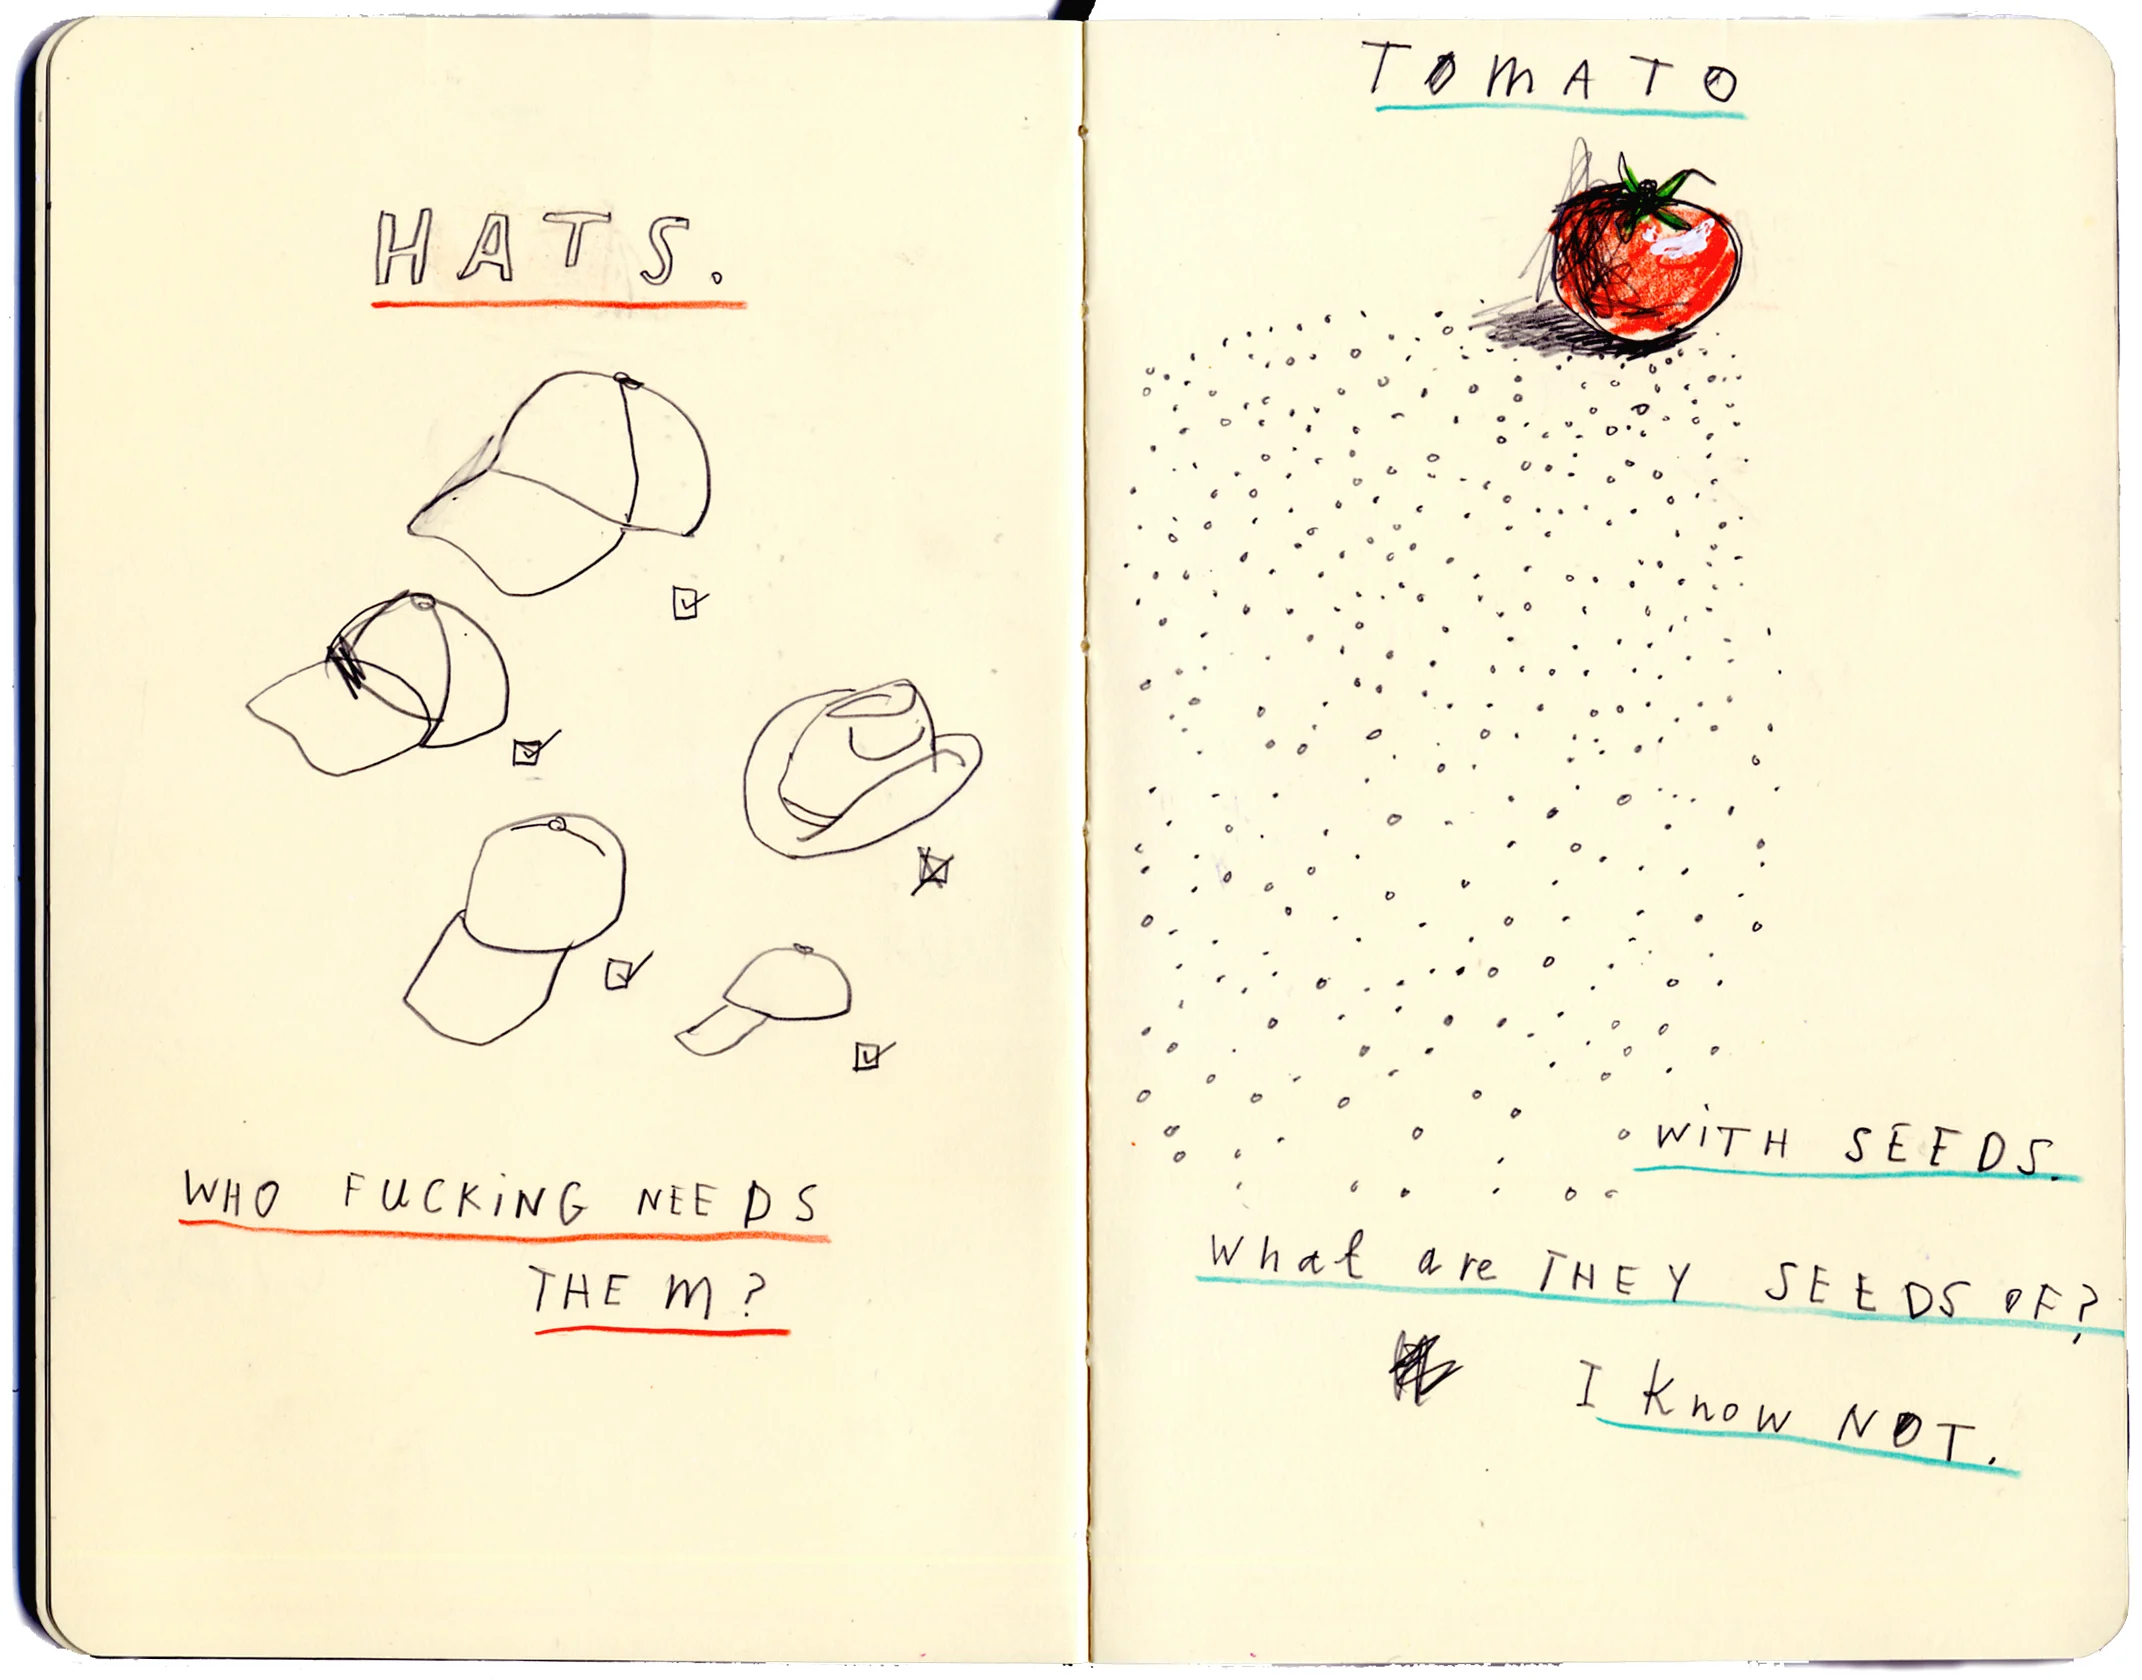 HATS.
WHO FUCKING NEEDS
THEM?
TOMATO
WITH SEEDS.
What are THEY SEEDS OF?
I Know NOT.